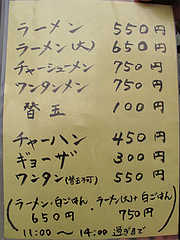 ラーメン 550円
ラーメン(大) 650円
チャーシューメン 750円
ワンタンメン 750円
替玉 100円
チャーハン 450円
ギョーザ 300円
ワンタン(替玉不可) 550円
(ラーメン・白ごはん 650円 ・ ラーメン(大)+白ごはん 750円)
11:00 〜 14:00 過ぎまで